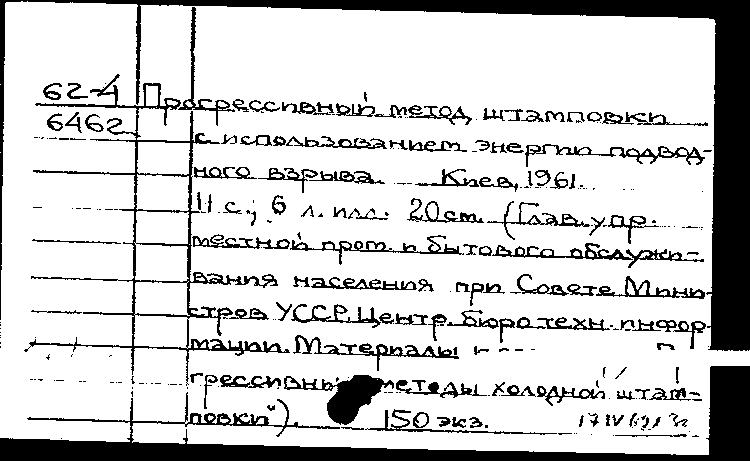 62-4 Прогрессивный метод штамповки
6462 с использованием энергии подвод-
ного взрыва. Киев, 1961.
11 с.; 6 л. илл. 20 см. (Глав. упр.
местной пром. и бытового обслужи-
вания населения при Совете Мини-
стров УССР. Центр. бюро техн. инфор-
мации. Материалы
грессивные методы холодной штам-
повки"). 150 экз.